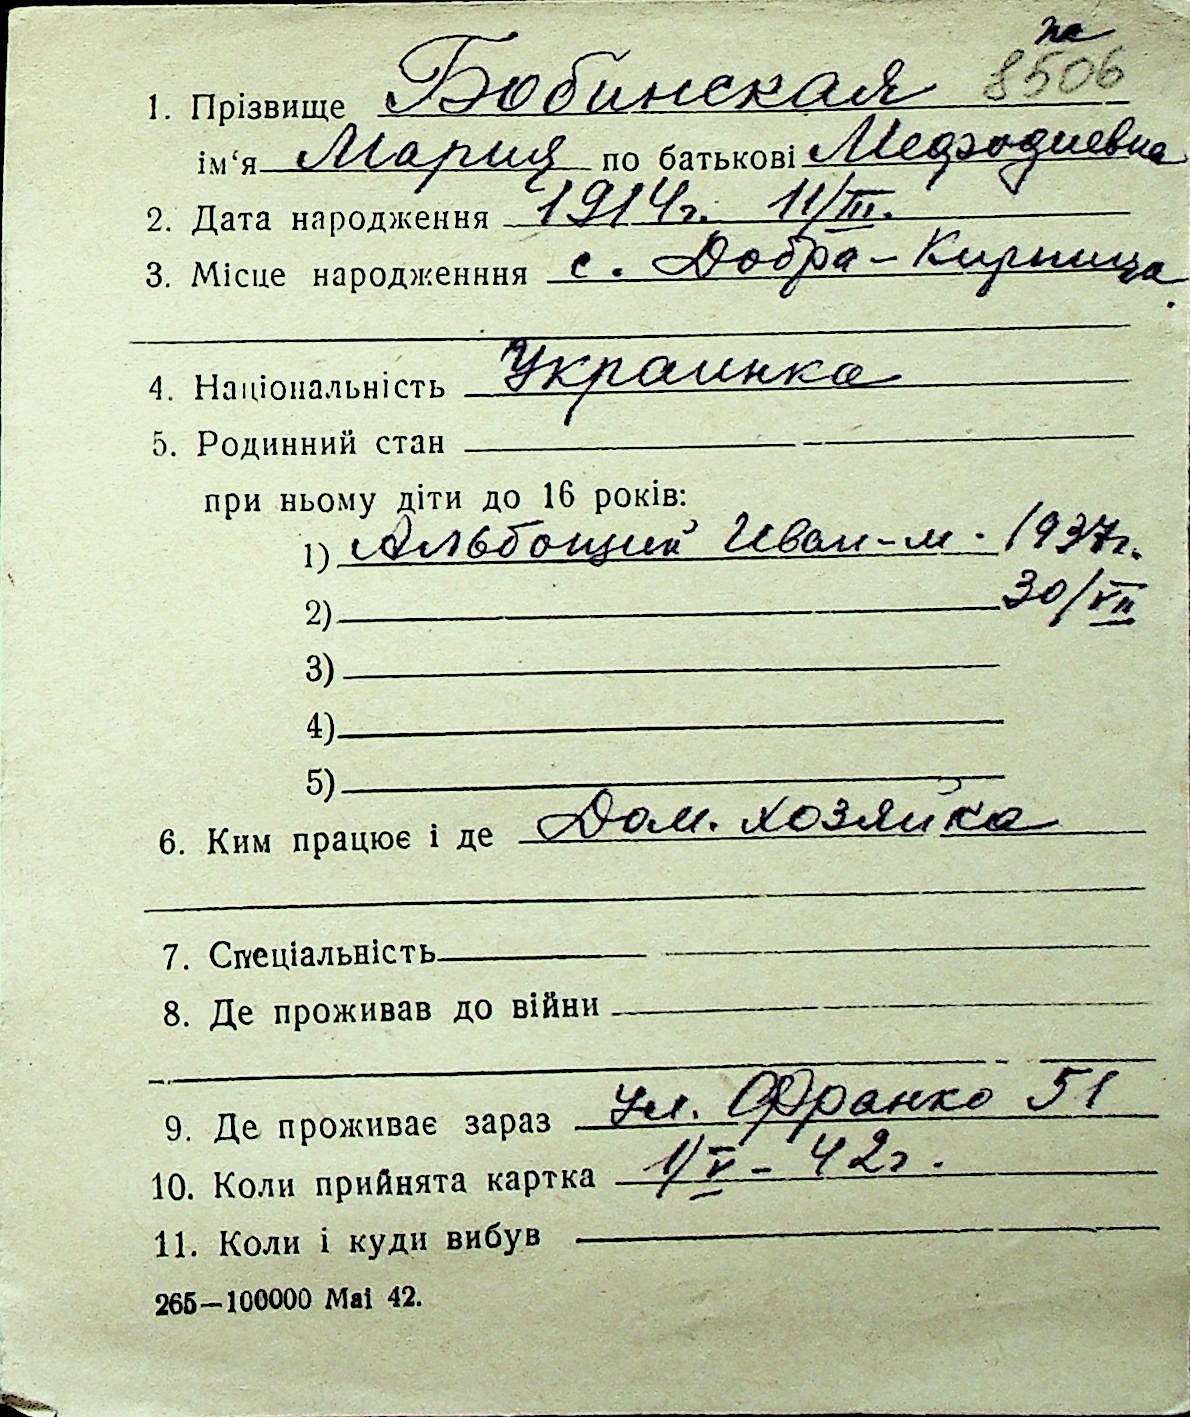 па
8506
1. Прізвище Бобинская
ім‘я Мария по батькові Мефодиевна
2. Дата народження 1914г. 11/III.
3. Місце народженння с. Добра-Кирница.
4. Національність Украинка
5. Родинний стан
при ньому діти до 16 років:
1) Альбощий Иван-м. 1937г.
2) 30/VII
3)
4)
5)
6. Ким працює і де Дом. хозяйка
7. Спеціальність
8. Де проживав до війни
9. Де проживає зараз ул. Франко 51
10. Коли прийнята картка 1/V - 42г.
11. Коли і куди вибув
265—100000 Mai 42.